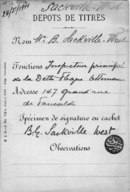 Sackville-West
DÉPÔTS DE TITRES
Nom Mr. B. Sackville-West
Fonctions Inspecteur principal
de la Dette Publique Ottomane
Adresse 147 grand rue
de
Spécimen de signature ou cachet
B.G. Sackville West
Observations